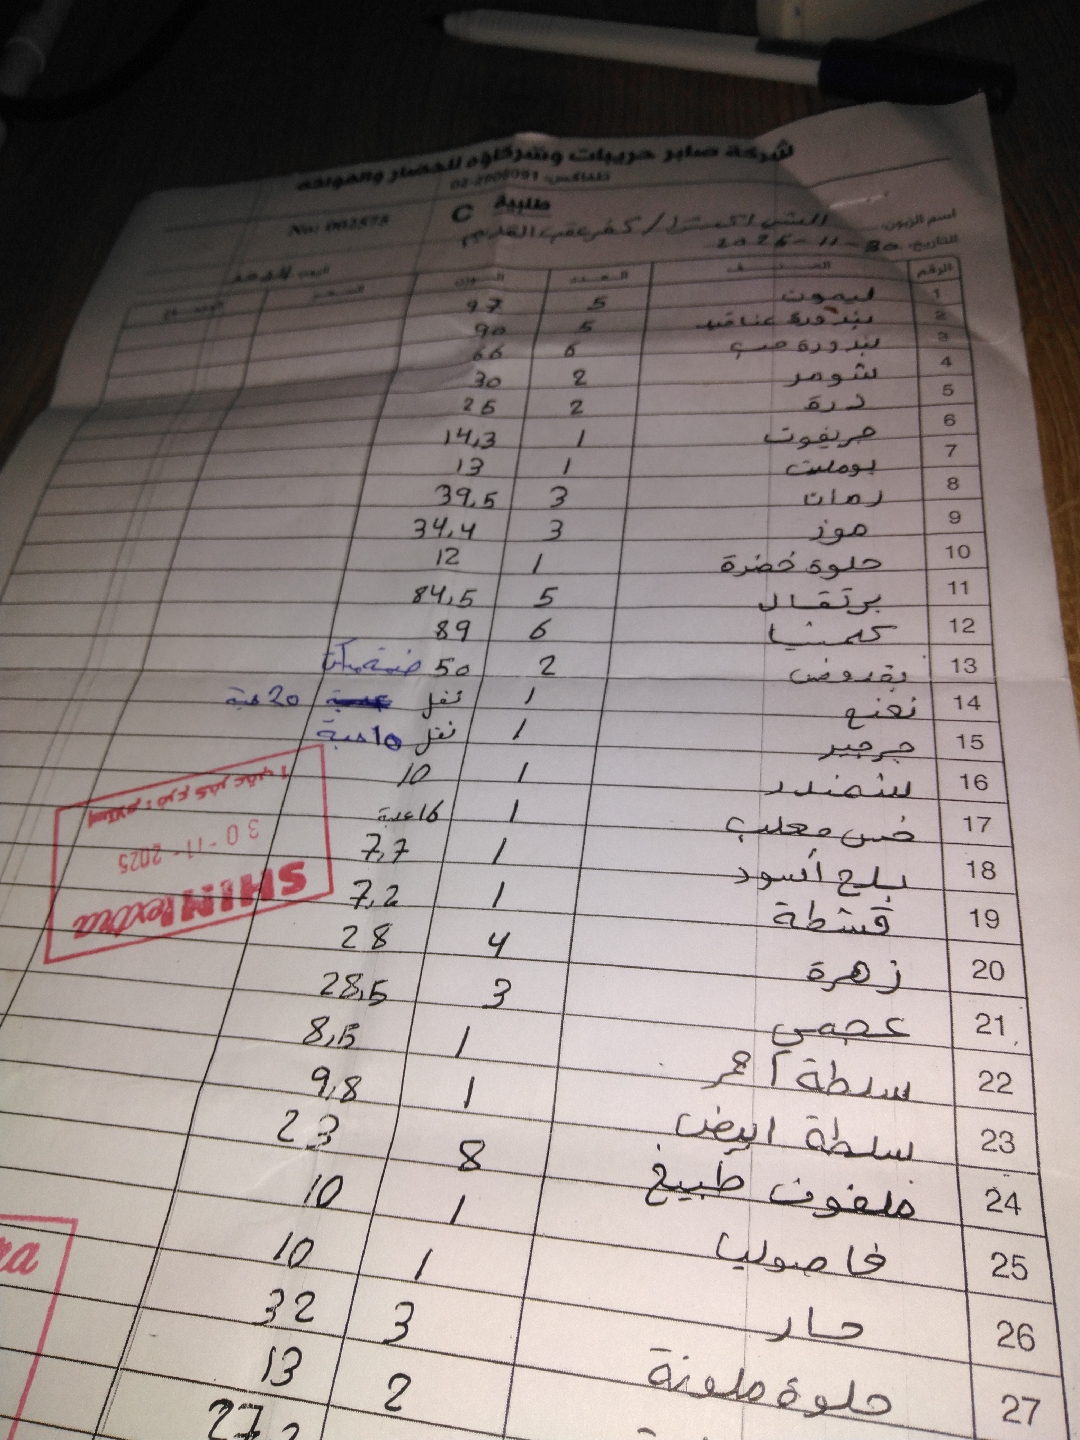 شركة صابر حريبات وشركاؤه للخضار والفواكه
تلفاكس: 02-2900091
No: 002575 C طلبية
اسم الزبون: الشني اكسترا / كفر عقب القديم
التاريخ: 30-11-2025 اليوم الاحد
الرقم الصنف العدد الوزن السعر
1 ليمون 5 97
2 بندورة عناقيد 5 90
3 بندورة حب 6 66
4 شومر 2 30
5 درة 2 25
6 جريفوت 1 14,3
7 بومليت 1 13
8 رمان 3 39,5
9 موز 3 34,4
10 حلوة خضرة 1 12
11 برتقال 5 84,5
12 كلمنتيا 6 89
13 بقدونس 2 50 ضمة
14 نعنع 1 نفل 20 حبة
15 جرجير 1 نفل 10 حبة
16 شمندر 1 10
17 خس معلب 1 16 علبة
18 بلح أسود 1 7,7
19 قشطة 1 7,2
20 زهرة 4 28
21 عجمي 3 28,5
22 سلطة أحمر 1 8,5
23 سلطة ابيض 1 9,8
24 ملفوف طبيخ 8 23
25 فاصوليا 1 10
26 حار 1 10
27 حلوة ملونة 3 32
2 13
27
SHINIextra
30-11-2025
إستلام : فرع كفر عقب 1
ra